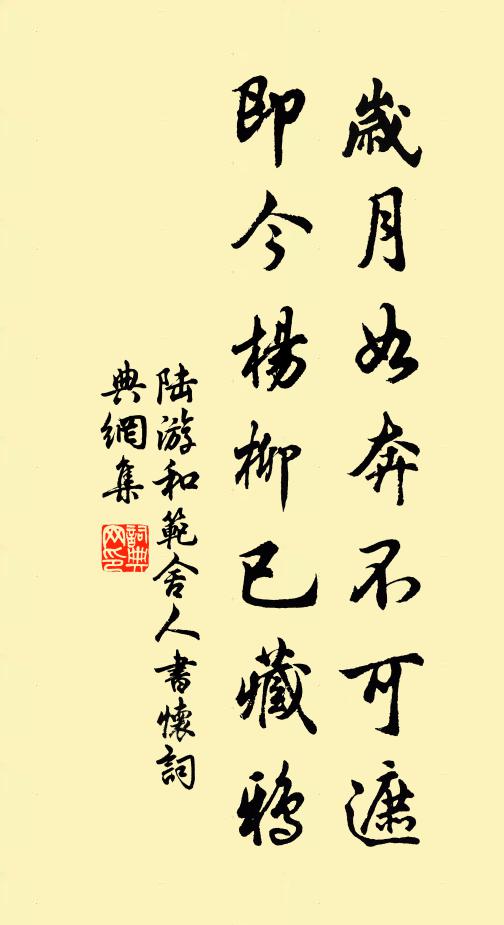 歲月如奔不可遮
即今楊柳已藏鴉
陸游和範舍人書懷詞
典網集
詞典網印